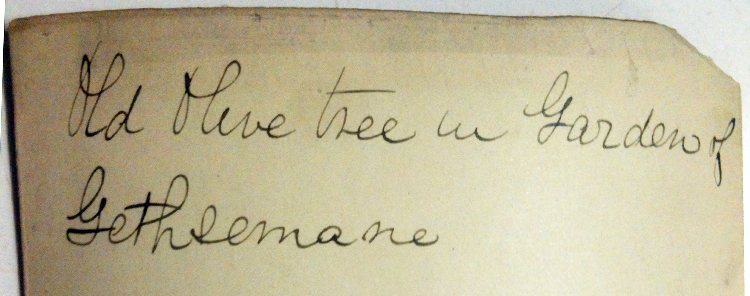 Old Olive tree in Garden of
Gethsemane